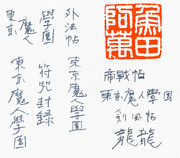 外法帖
東京魔人學園
符咒封錄
東京魔人學園
東京魔人學園
阿萬
戰帖
東京魔人學園
剣風帖
龍龍